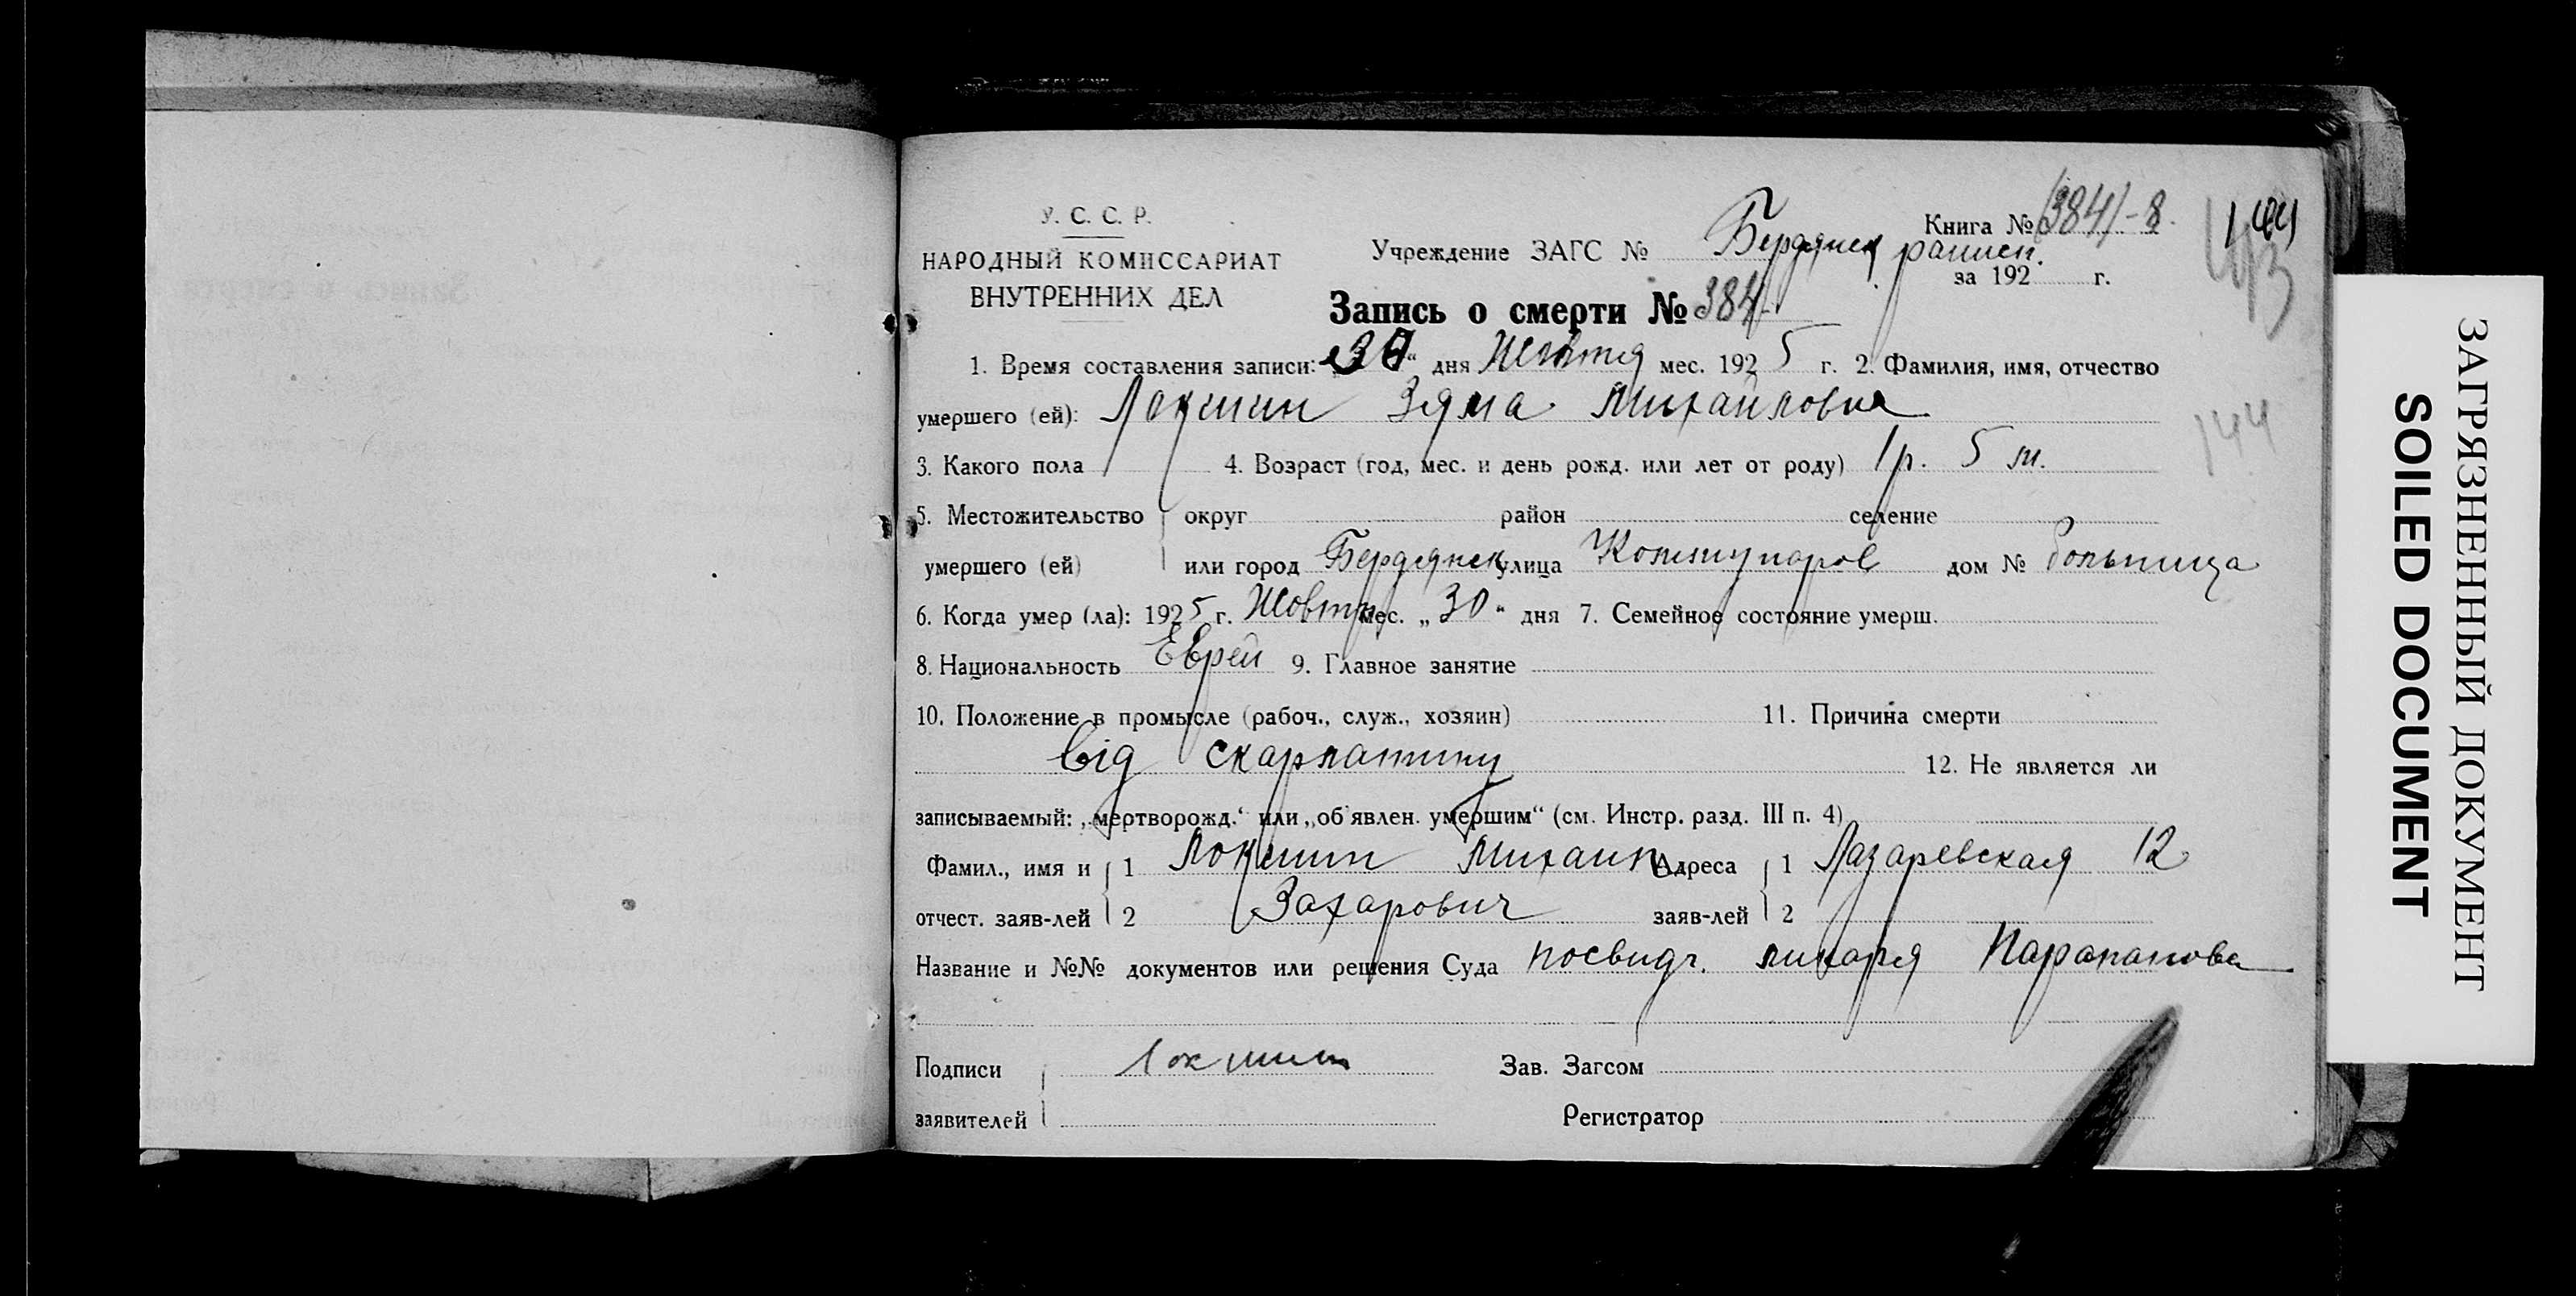 У. С. С. Р.
НАРОДНЫЙ КОМИССАРИАТ
ВНУТРЕННИХ ДЕЛ
Книга № (384)-8.
144
Учреждение ЗАГС № Бердянск
за 192 г.
Запись о смерти № 384
1. Время составления записи: „30“ дня Жовтня мес. 1925 г. 2. Фамилия, имя, отчество
умершего (ей): Локшин Зяма Михайлович
144
3. Какого пола 4. Возраст (год, мес. и день рожд. или лет от роду) 1 р. 5 м.
5. Местожительство округ район селение
умершего (ей) или город Бердянск улица Коммунаров дом № больница
6. Когда умер (ла): 1925 г. Жовтн мес. „30“ дня 7. Семейное состояние умерш.
8. Национальность Еврей 9. Главное занятие
10. Положение в промысле (рабоч., служ., хозяин) 11. Причина смерти
від скарлатину 12. Не является ли
записываемый: „мертворожд.“ или „об'явлен. умершим“ (см. Инстр. разд. III п. 4)
Фамил., имя и 1 Локшин Михаил Адреса 1 Лазаревская 12
отчест. заяв-лей 2 Захарович заяв-лей 2
Название и №№ документов или решения Суда посвидч. ликаря
Подписи Локшин Зав. Загсом
заявителей Регистратор
ЗАГРЯЗНЕННЫЙ ДОКУМЕНТ
SOILED DOCUMENT